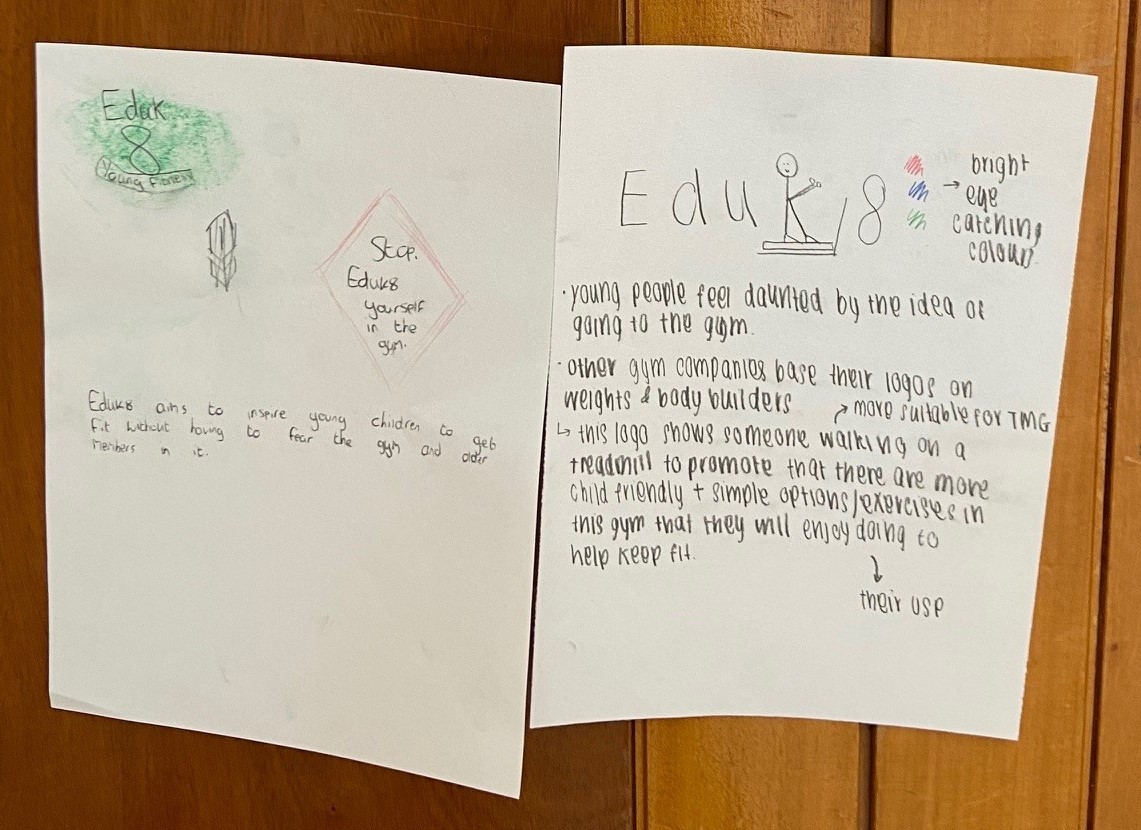 Eduk
8
Young Fitness
Stop.
Eduk8
yourself
in the
gym.
Eduk8 aims to inspire young children to get
fit without having to fear the gym and older
members in it.
Edu 8
bright
→ eye
catching
colours.
· young people feel daunted by the idea of
going to the gym.
· other gym companies base their logos on
weights & body builders
↗ more suitable for TMG
↳ this logo shows someone walking on a
treadmill to promote that there are more
child friendly + simple options/exercises in
this gym that they will enjoy doing to
help keep fit.
↓
their USP